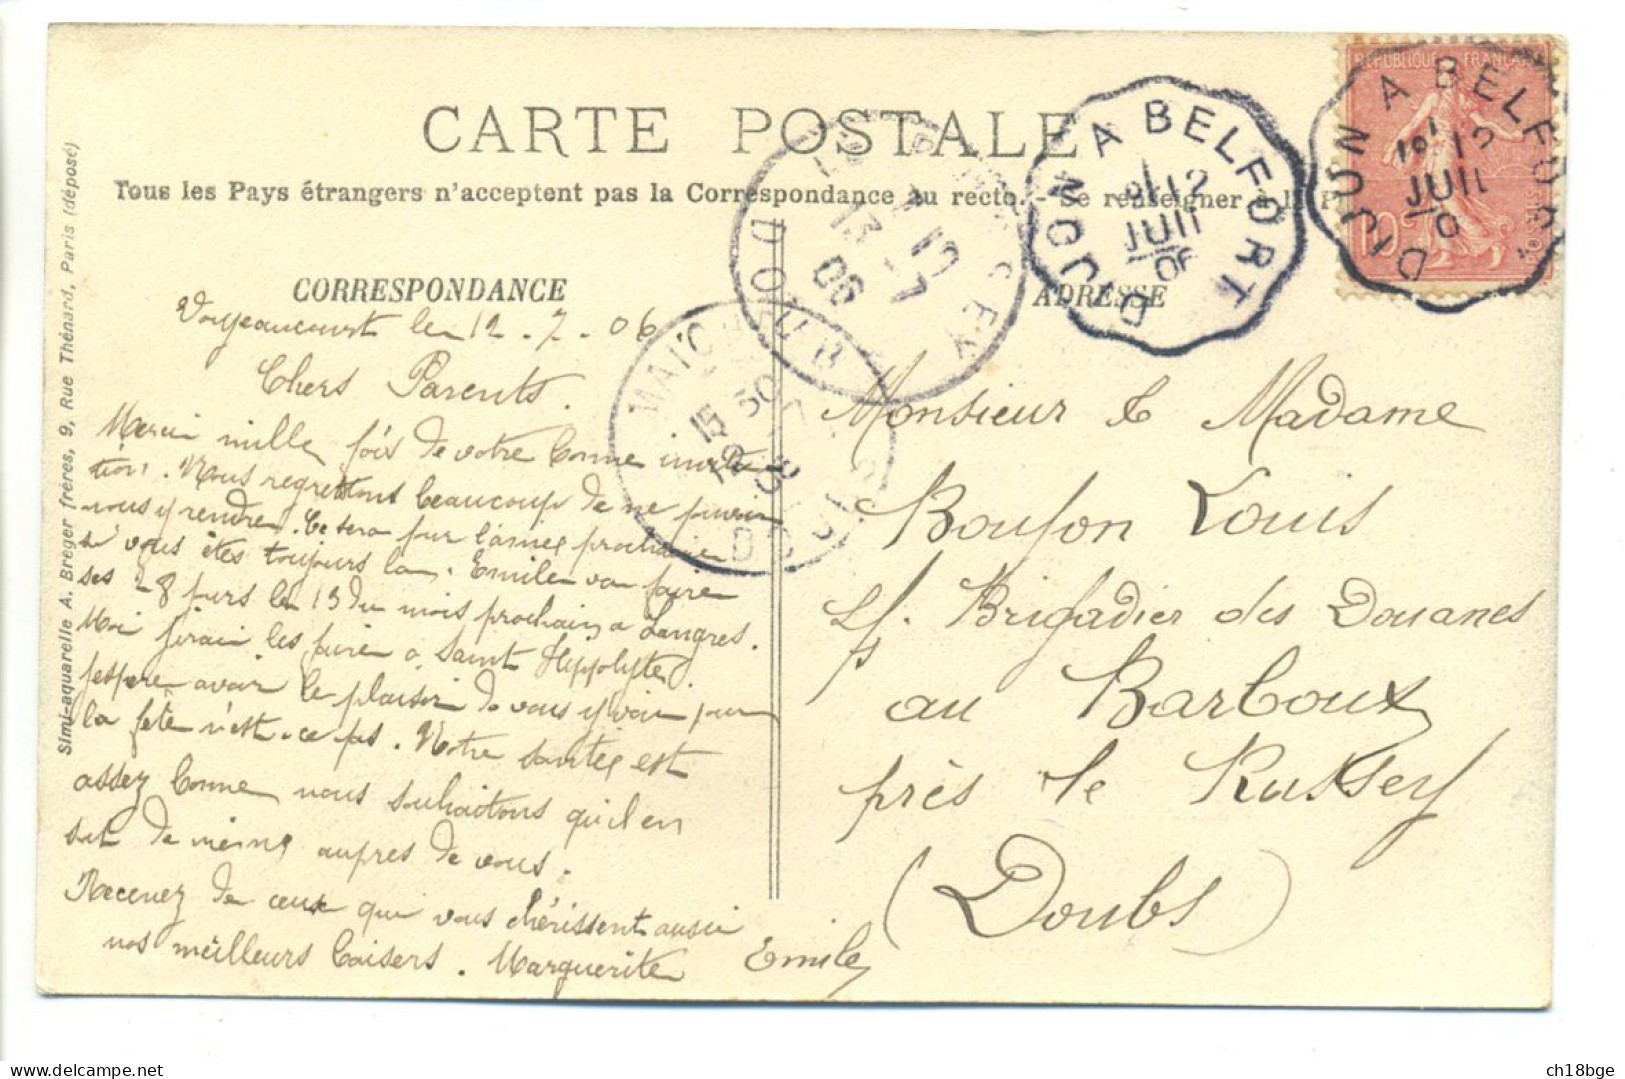 CARTE POSTALE
Tous les Pays étrangers n'acceptent pas la Correspondance au recto. - Se renseigner à la P
CORRESPONDANCE
ADRESSE
Simi-aquarelle A. Breger frères, 9, Rue Thénard, Paris (déposé)
Voujeaucourt le 12 - 7 - 06.
Chers Parents.
Merci mille fois de votre bonne invita
tion. Nous regrettons beaucoup de ne pouvoir
nous y rendre. Ce sera pour l'année prochaine
si vous êtes toujours la. Emile va faire
ses 28 jours le 13 du mois prochain a Langres.
Moi j'irai les faire a Saint Hippolyte.
J'espère avoir le plaisir de vous y voir pour
la fête n'est-ce pas. Notre santée est
assez bonne nous souhaitons qu'il en
soit de même aupres de vous.
Recevez de ceux qui vous chérissent aussi
nos meilleurs baisers. Marguerite Emile
Monsieur & Madame
Boujon Louis
Sf. Brigadier des Douanes
au Barboux
près le Russey
(Doubs)
DIJON A BELFORT
12
JUIL
06
DIJON A BELFORT
12
JUIL
0
REPUBLIQUE FRANÇAISE
10c
12 -7
06
DOUBS
MAICHE
15 30
12 -7
06
DOUBS